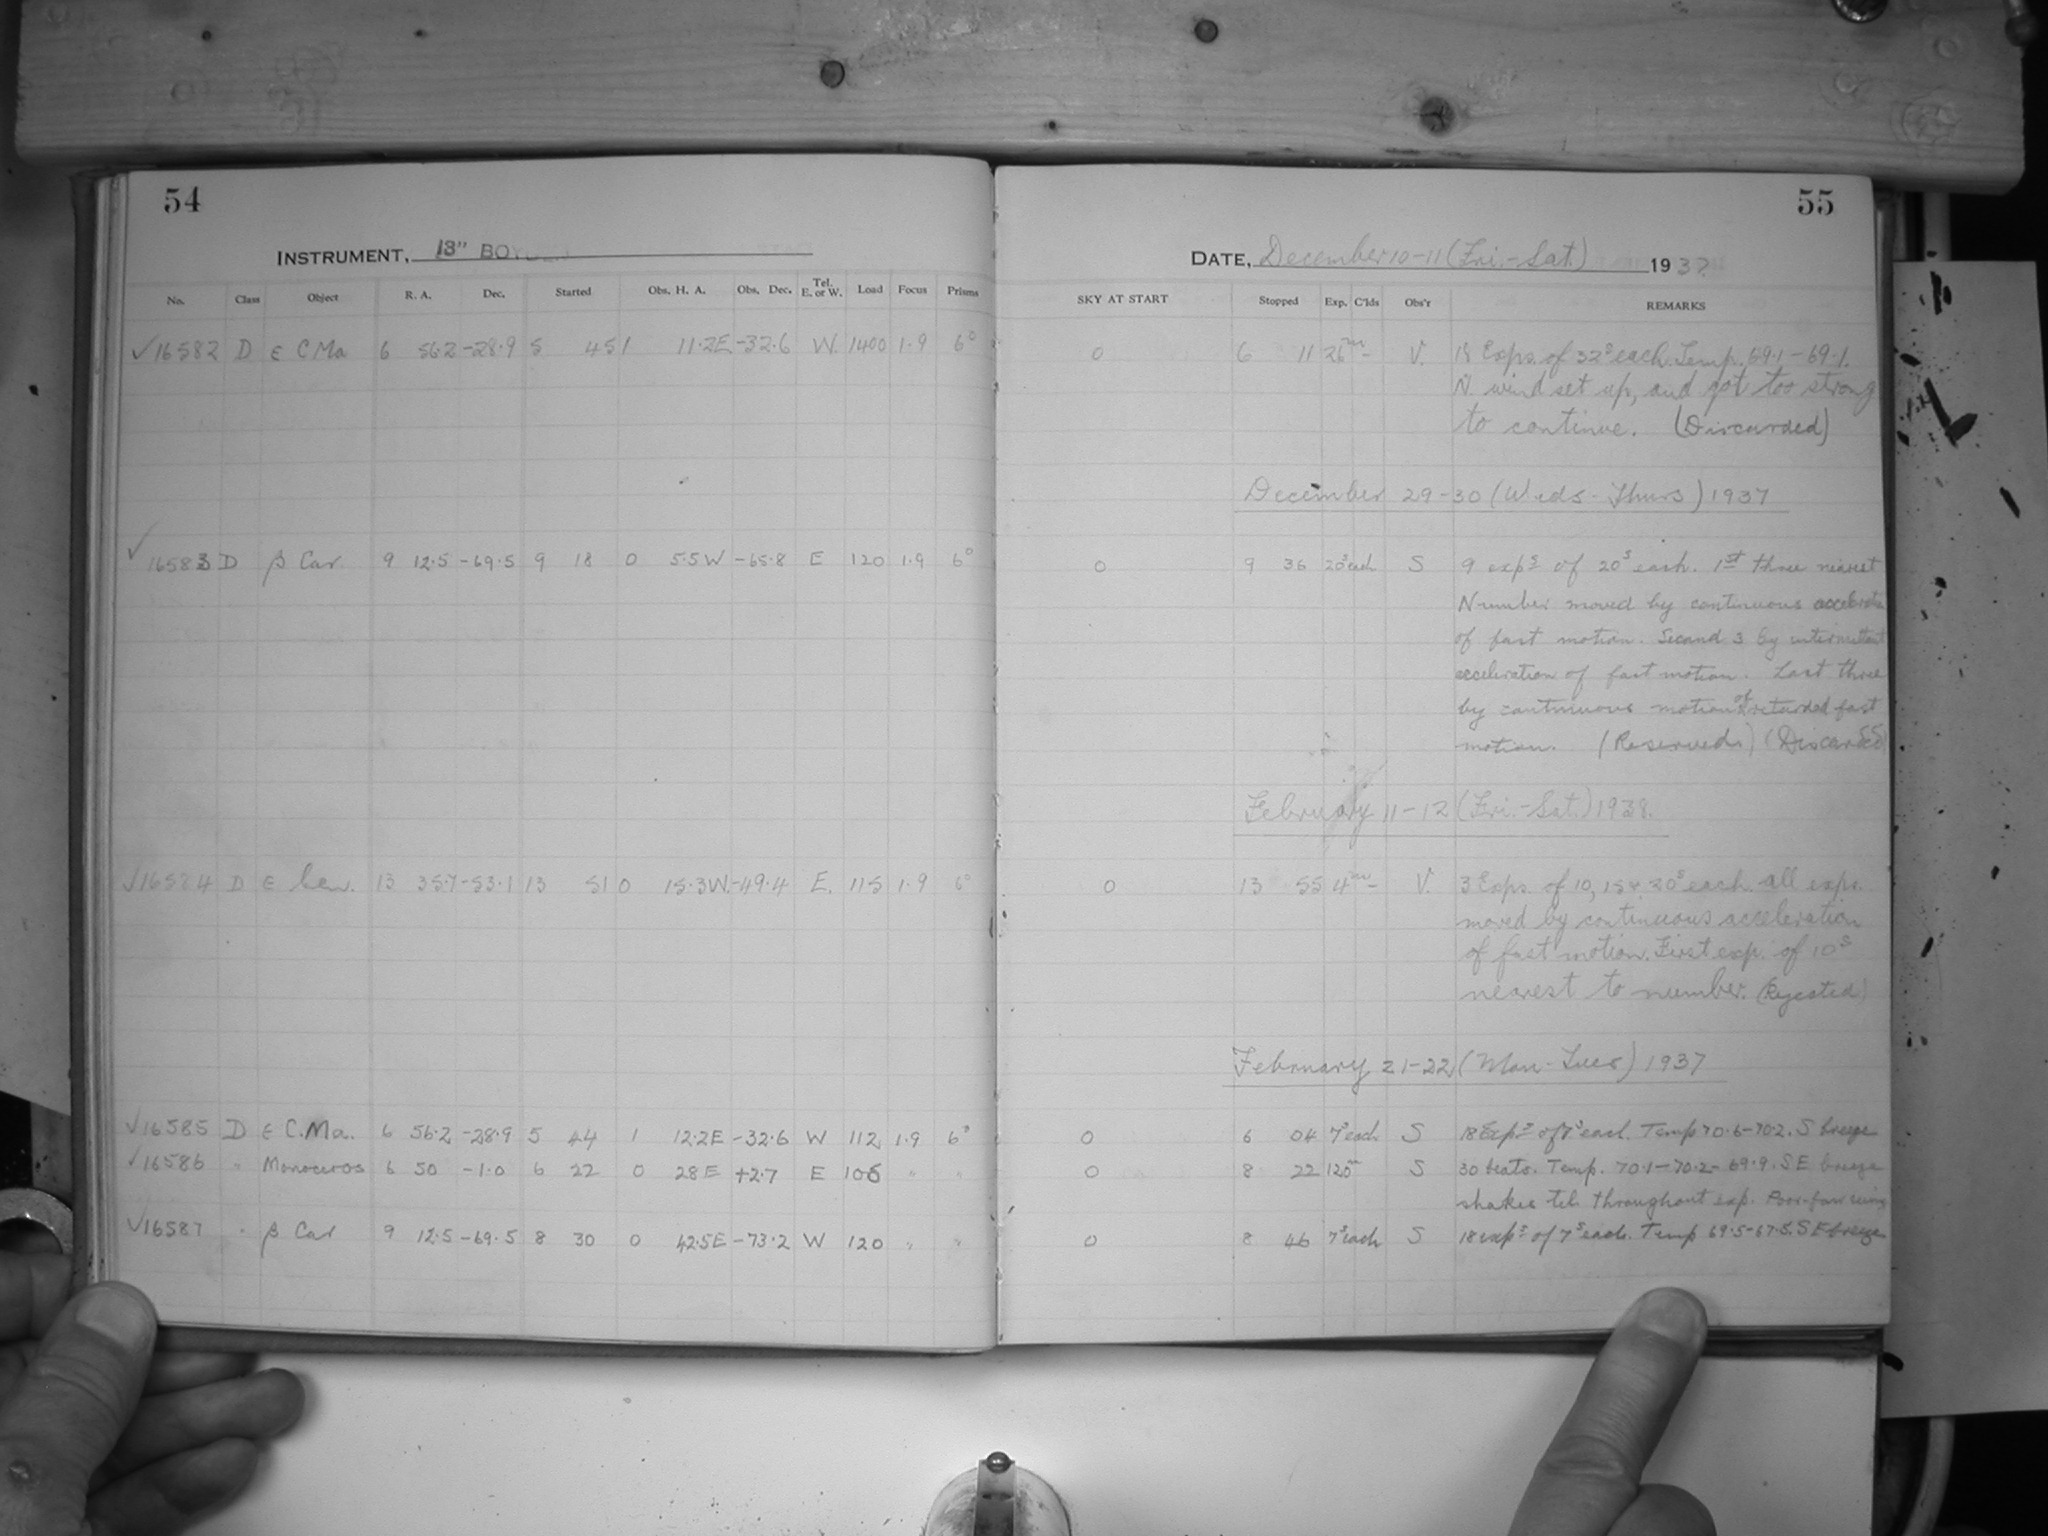 54
INSTRUMENT, 13" BOYDEN
No. Class Object R. A. Dec. Started Obs. H. A. Obs. Dec. Tel. E. or W. Load Focus Prisms
✓16582 D ε C Ma 6 56.2 -28.9 5 45 1 11.2E -32.6 W. 1400 1.9 6°
✓16583 D β Car 9 12.5 -69.5 9 18 0 5.5W -65.8 E 120 1.9 6°
✓16584 D ε Cen. 13 35.7 -53.1 13 51 0 15.3W. -49.4 E. 115 1.9 6°
✓16585 D ε C.Ma. 6 56.2 -28.9 5 44 1 12.2E -32.6 W 112 1.9 6°
✓16586 " Monoceros 6 50 -1.0 6 22 0 28E +2.7 E 106 " "
✓16587 " β Car 9 12.5 -69.5 8 30 0 42.5E -73.2 W 120 " "
55
DATE, December 10-11 (Fri.-Sat.) 1937
SKY AT START Stopped Exp. C'lds Obs'r REMARKS
0 6 11 26m- V. 18 Exps. of 32s each. Temp. 69.1-69.1.
N. wind set up, and got too strong
to continue. (Discarded)
December 29-30 (Weds-Thurs) 1937
0 9 36 20s each S 9 exps of 20s each. 1st three nearest
Number moved by continuous
of fast motion. Second 3 by intermittent
acceleration of fast motion. Last three
by continuous motion of retarded fast
motion. (Reserved) (Discarded)
February 11-12 (Fri.-Sat.) 1938.
0 13 55 4m- V. 3 Exps. of 10, 15 & 30s each. All exps.
moved by continuous acceleration
of fast motion. First exp. of 10s
nearest to number. (Rejected)
February 21-22 (Mon-Tues) 1937
0 6 04 7s each S 18 Exps of 7s each. Temp 70.6-70.2. S breeze
0 8 22 120m S 30 beats. Temp. 70.1-70.2-69.9. SE breeze
shakes tel. throughout exp. Poor-fair
0 8 46 7s each S 18 exps of 7s each. Temp 69.5-67.5. SE breeze